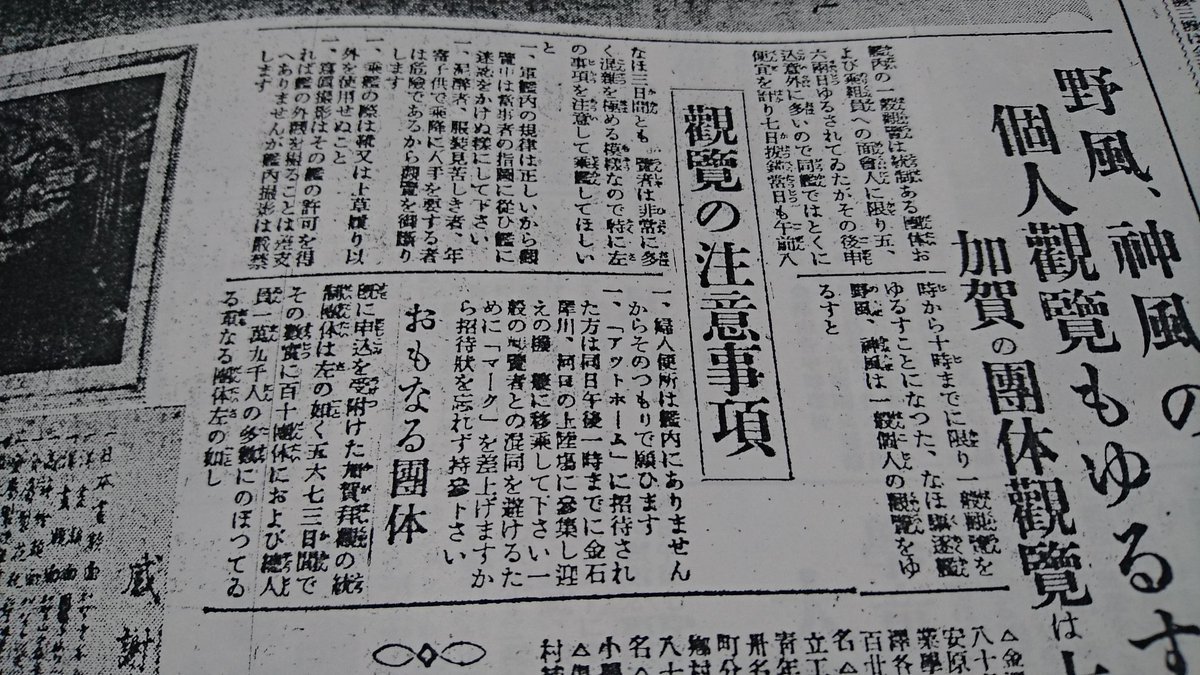 野風、神風の
個人觀覽もゆるす
加賀の團体觀覽は七
艦内の一般觀覽は統制ある團体お
よび乘組員への面會人に限り五、
六兩日ゆるされてゐたがその後申
込意外に多いので同艦ではとくに
便宜を計り七日拔錨當日も午前八
時から十時までに限り一般觀覽を
ゆるすことになつた、なほ驅逐艦
野風、神風は一般個人の觀覽をゆ
るすと
觀覽の注意事項
なほ三日間とも觀覽者は非常に多
く混雜を極める模樣なので特に左
の事項を注意して乘艦してほしい
と
一、軍艦内の規律は正しいから觀
覽中は當事者の指圖に從ひ艦に
迷惑をかけぬ樣にして下さい
一、泥醉者、服裝見苦しき者、年
寄子供で乘降に人手を要する者
は危險であるから觀覽を御斷り
します
一、乘艦の際は靴又は上草履り以
外を使用せぬこと
一、寫眞撮影はその艦の許可を得
れば艦の外觀を撮ることは差支
へありませんが艦内撮影は嚴禁
します
一、婦人便所は艦内にありません
からそのつもりで願ひます
一、「アットホーム」に招待され
た方は同日午後一時までに金石
犀川、河口の上陸場に參集し迎
えの艇に移乘して下さい一
般の觀覽者との混同を避けるた
めに「マーク」を差上げますか
ら招待狀を忘れず持參下さい
おもなる團体
既に申込を受附けた加賀拜觀の統
制團体は左の如く五六七三日間で
その數實に百十團体におよび總人
員一萬九千人の多數にのぼつてゐ
る重なる團体左の如し
△金
八十
安原
業學
澤各
百北
名△
立工
靑年
舟名
町分
鄕村
八十
名△
小學
村
感謝
日本畫
洋畫